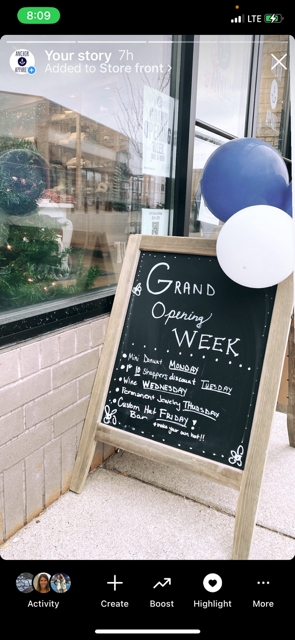 8:09
LTE
Your story 7h
Added to Store front >
GRAND
Opening
WEEK
Mini Donut MONDAY
Shoppers discount TUESDAY
Wine WEDNESDAY
Permanent Jewelry THURSDAY
Custom Hat FRIDAY
Bar
make your own hat!!
Activity
Create
Boost
Highlight
More